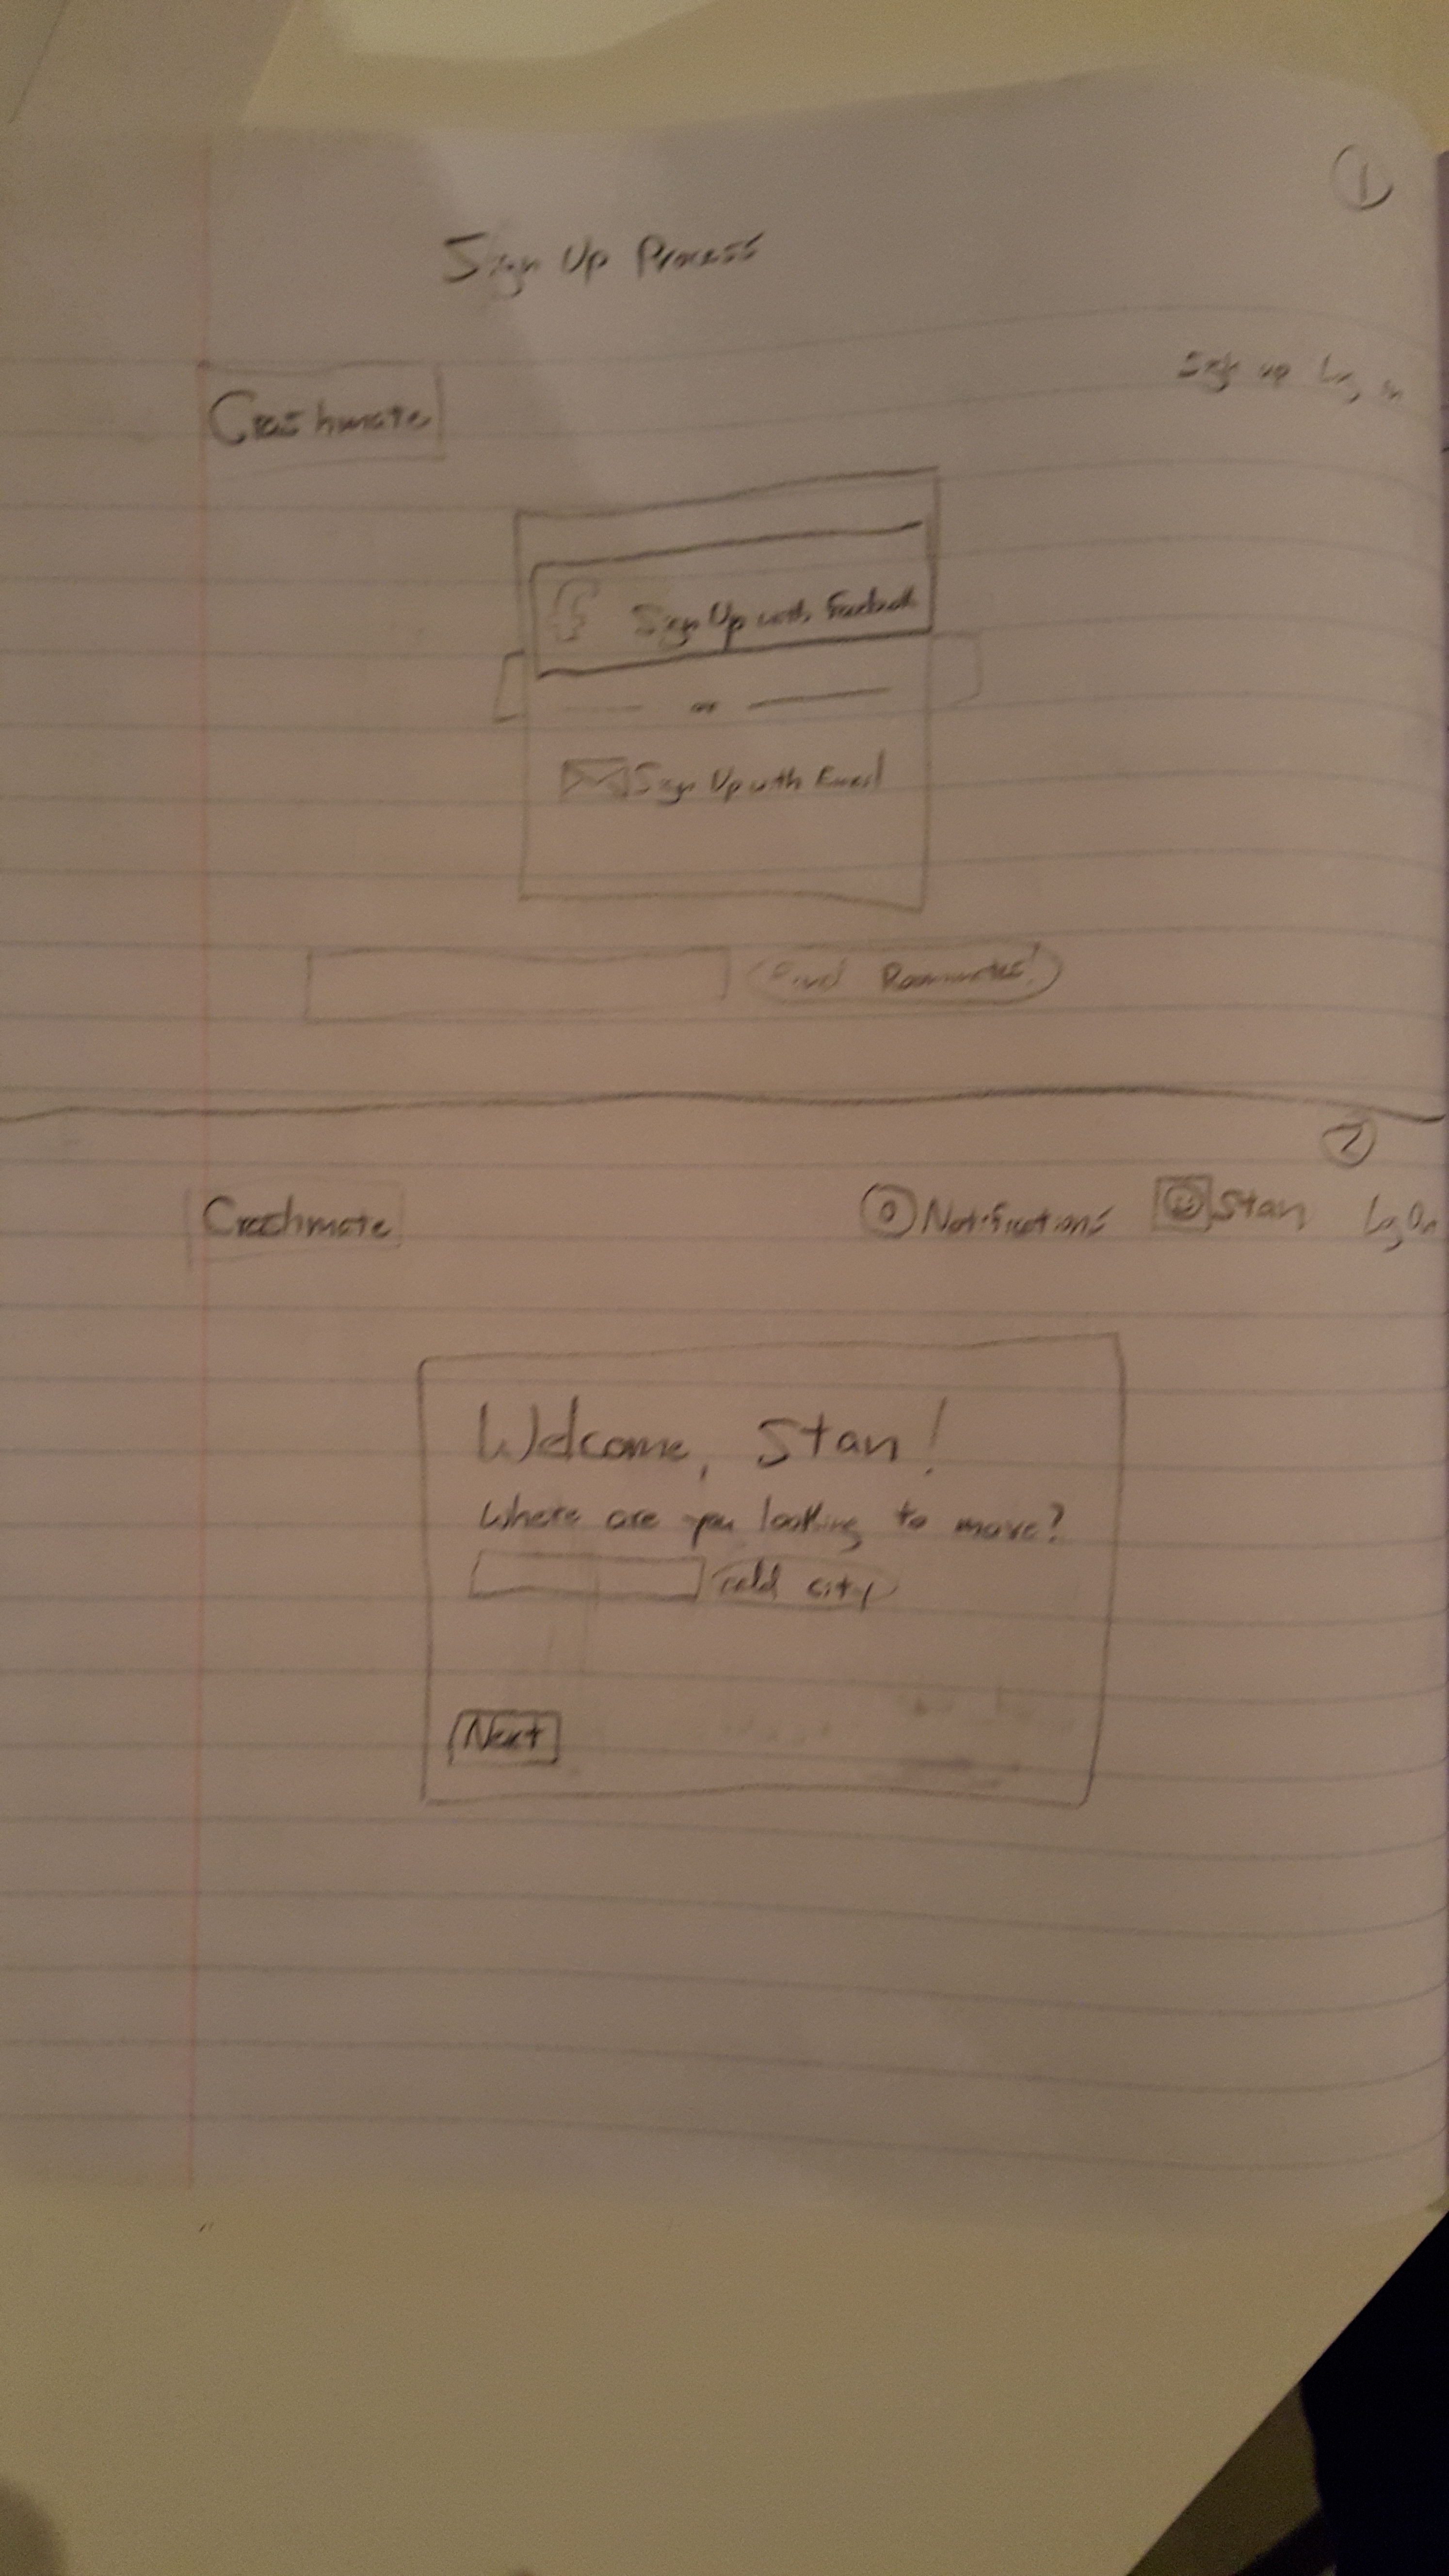 1
Sign Up Process
Sign up Log in
Crashmate
f Sign Up with Facebook
or
Sign Up with Email
Find Roommates!
2
Crashmate
0 Notifications Stan Log Ou
Welcome, Stan!
Where are you looking to move?
add city
Next